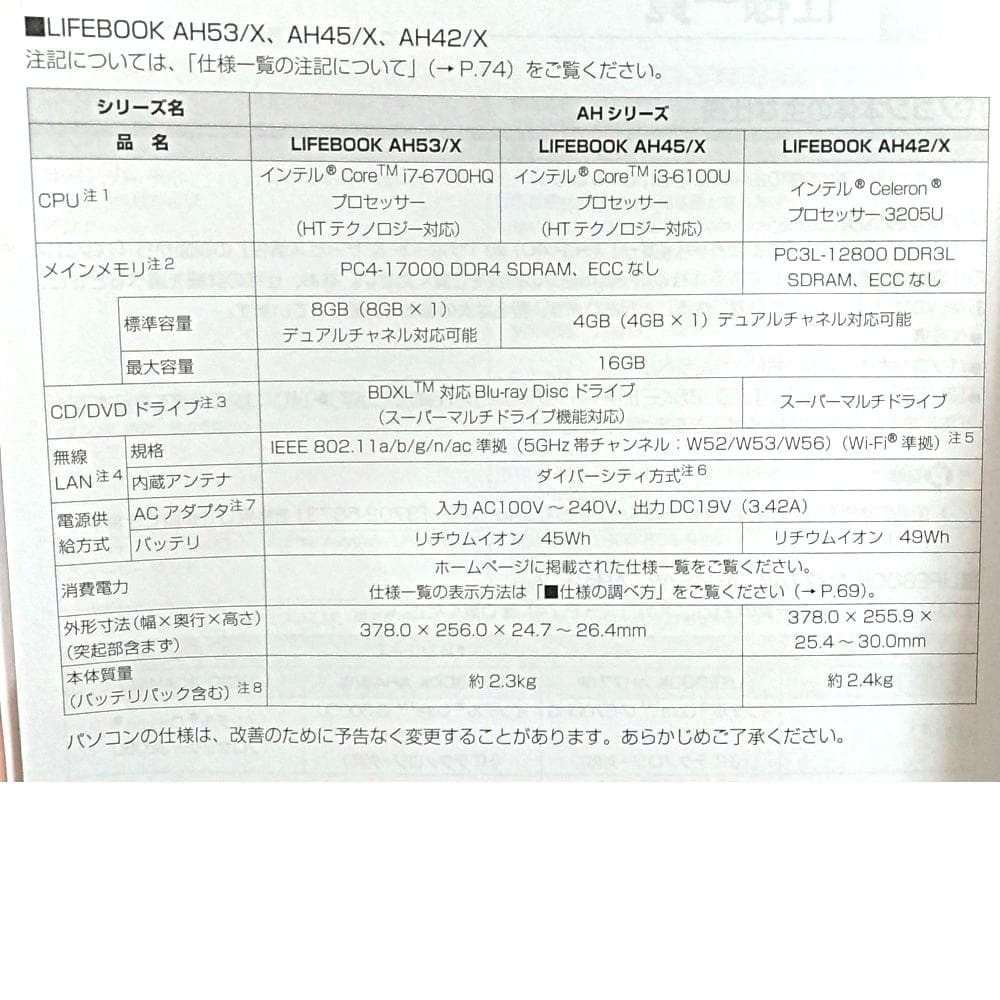 ■LIFEBOOK AH53/X、AH45/X、AH42/X
注記については、「仕様一覧の注記について」(→P.74)をご覧ください。
シリーズ名
AHシリーズ
品 名
LIFEBOOK AH53/X
LIFEBOOK AH45/X
LIFEBOOK AH42/X
CPU注1
インテル® Core™ i7-6700HQ
プロセッサー
(HTテクノロジー対応)
インテル® Core™ i3-6100U
プロセッサー
(HTテクノロジー対応)
インテル® Celeron®
プロセッサー 3205U
メインメモリ注2
PC4-17000 DDR4 SDRAM、ECCなし
PC3L-12800 DDR3L
SDRAM、ECCなし
標準容量
8GB(8GB×1)
デュアルチャネル対応可能
4GB(4GB×1)デュアルチャネル対応可能
最大容量
16GB
CD/DVDドライブ注3
BDXL™対応Blu-ray Discドライブ
(スーパーマルチドライブ機能対応)
スーパーマルチドライブ
無線
LAN注4
規格
IEEE 802.11a/b/g/n/ac準拠(5GHz帯チャンネル:W52/W53/W56)(Wi-Fi®準拠)注5
内蔵アンテナ
ダイバーシティ方式注6
電源供
給方式
ACアダプタ注7
入力AC100V~240V、出力DC19V(3.42A)
バッテリ
リチウムイオン 45Wh
リチウムイオン 49Wh
消費電力
ホームページに掲載された仕様一覧をご覧ください。
仕様一覧の表示方法は「■仕様の調べ方」をご覧ください(→P.69)。
外形寸法(幅×奥行×高さ)
(突起部含まず)
378.0×256.0×24.7~26.4mm
378.0×255.9×
25.4~30.0mm
本体質量
(バッテリパック含む)注8
約2.3kg
約2.4kg
パソコンの仕様は、改善のために予告なく変更することがあります。あらかじめご了承ください。